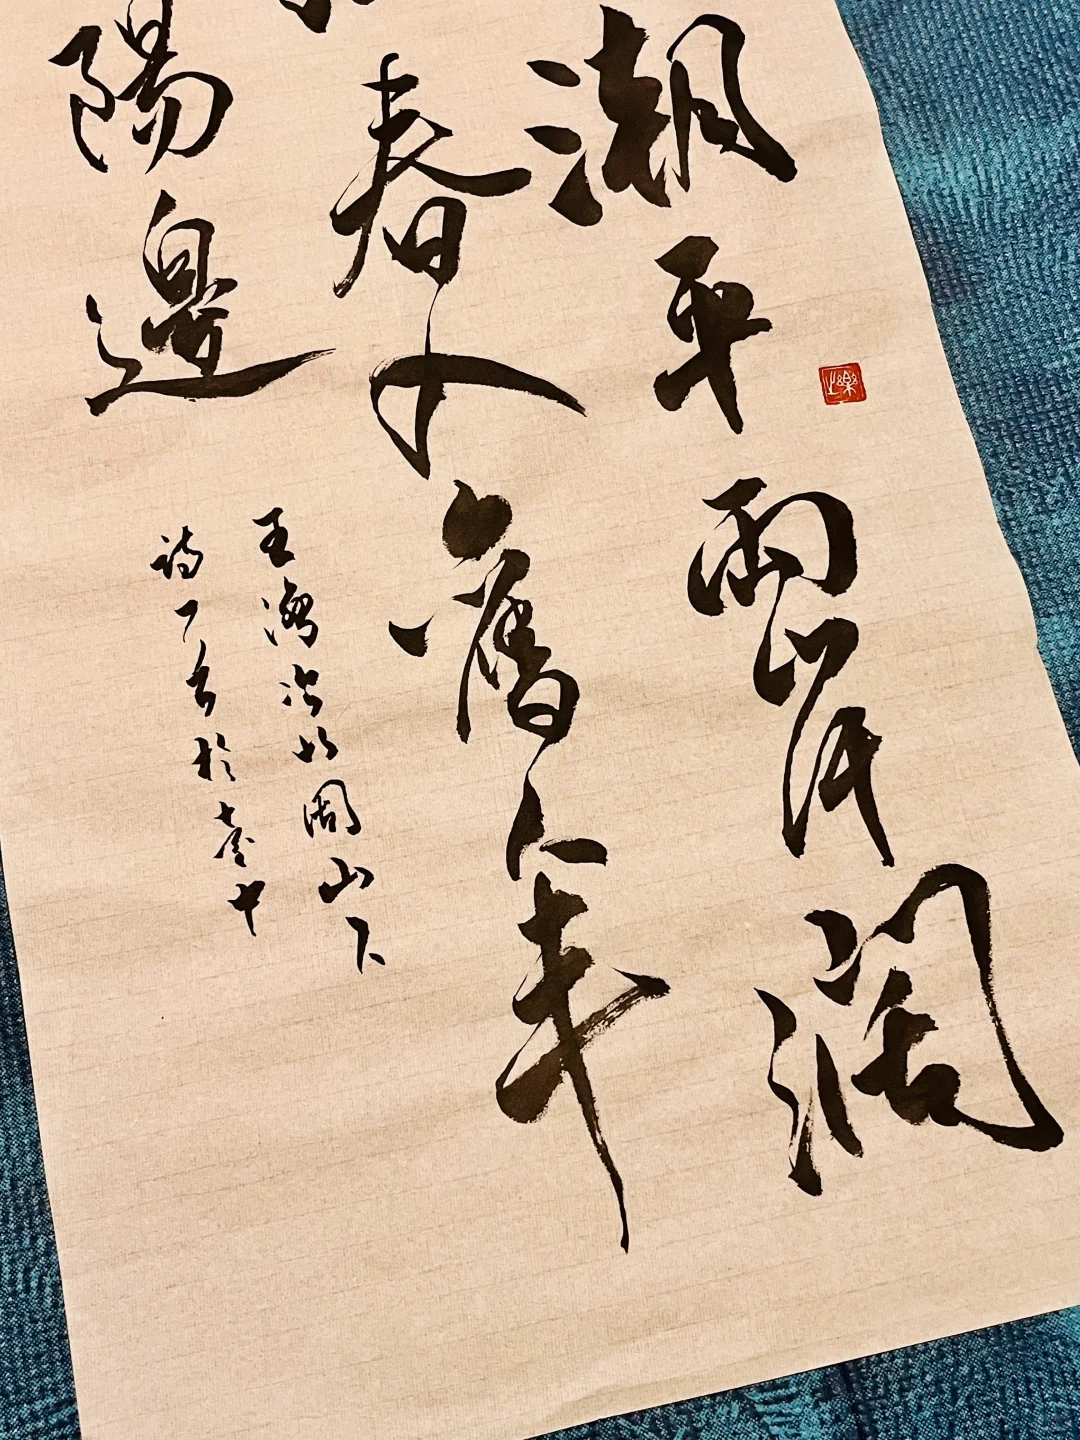 潮平兩岸闊
春入舊年
陽邊
王灣次北固山下
詩丁亥於臺中